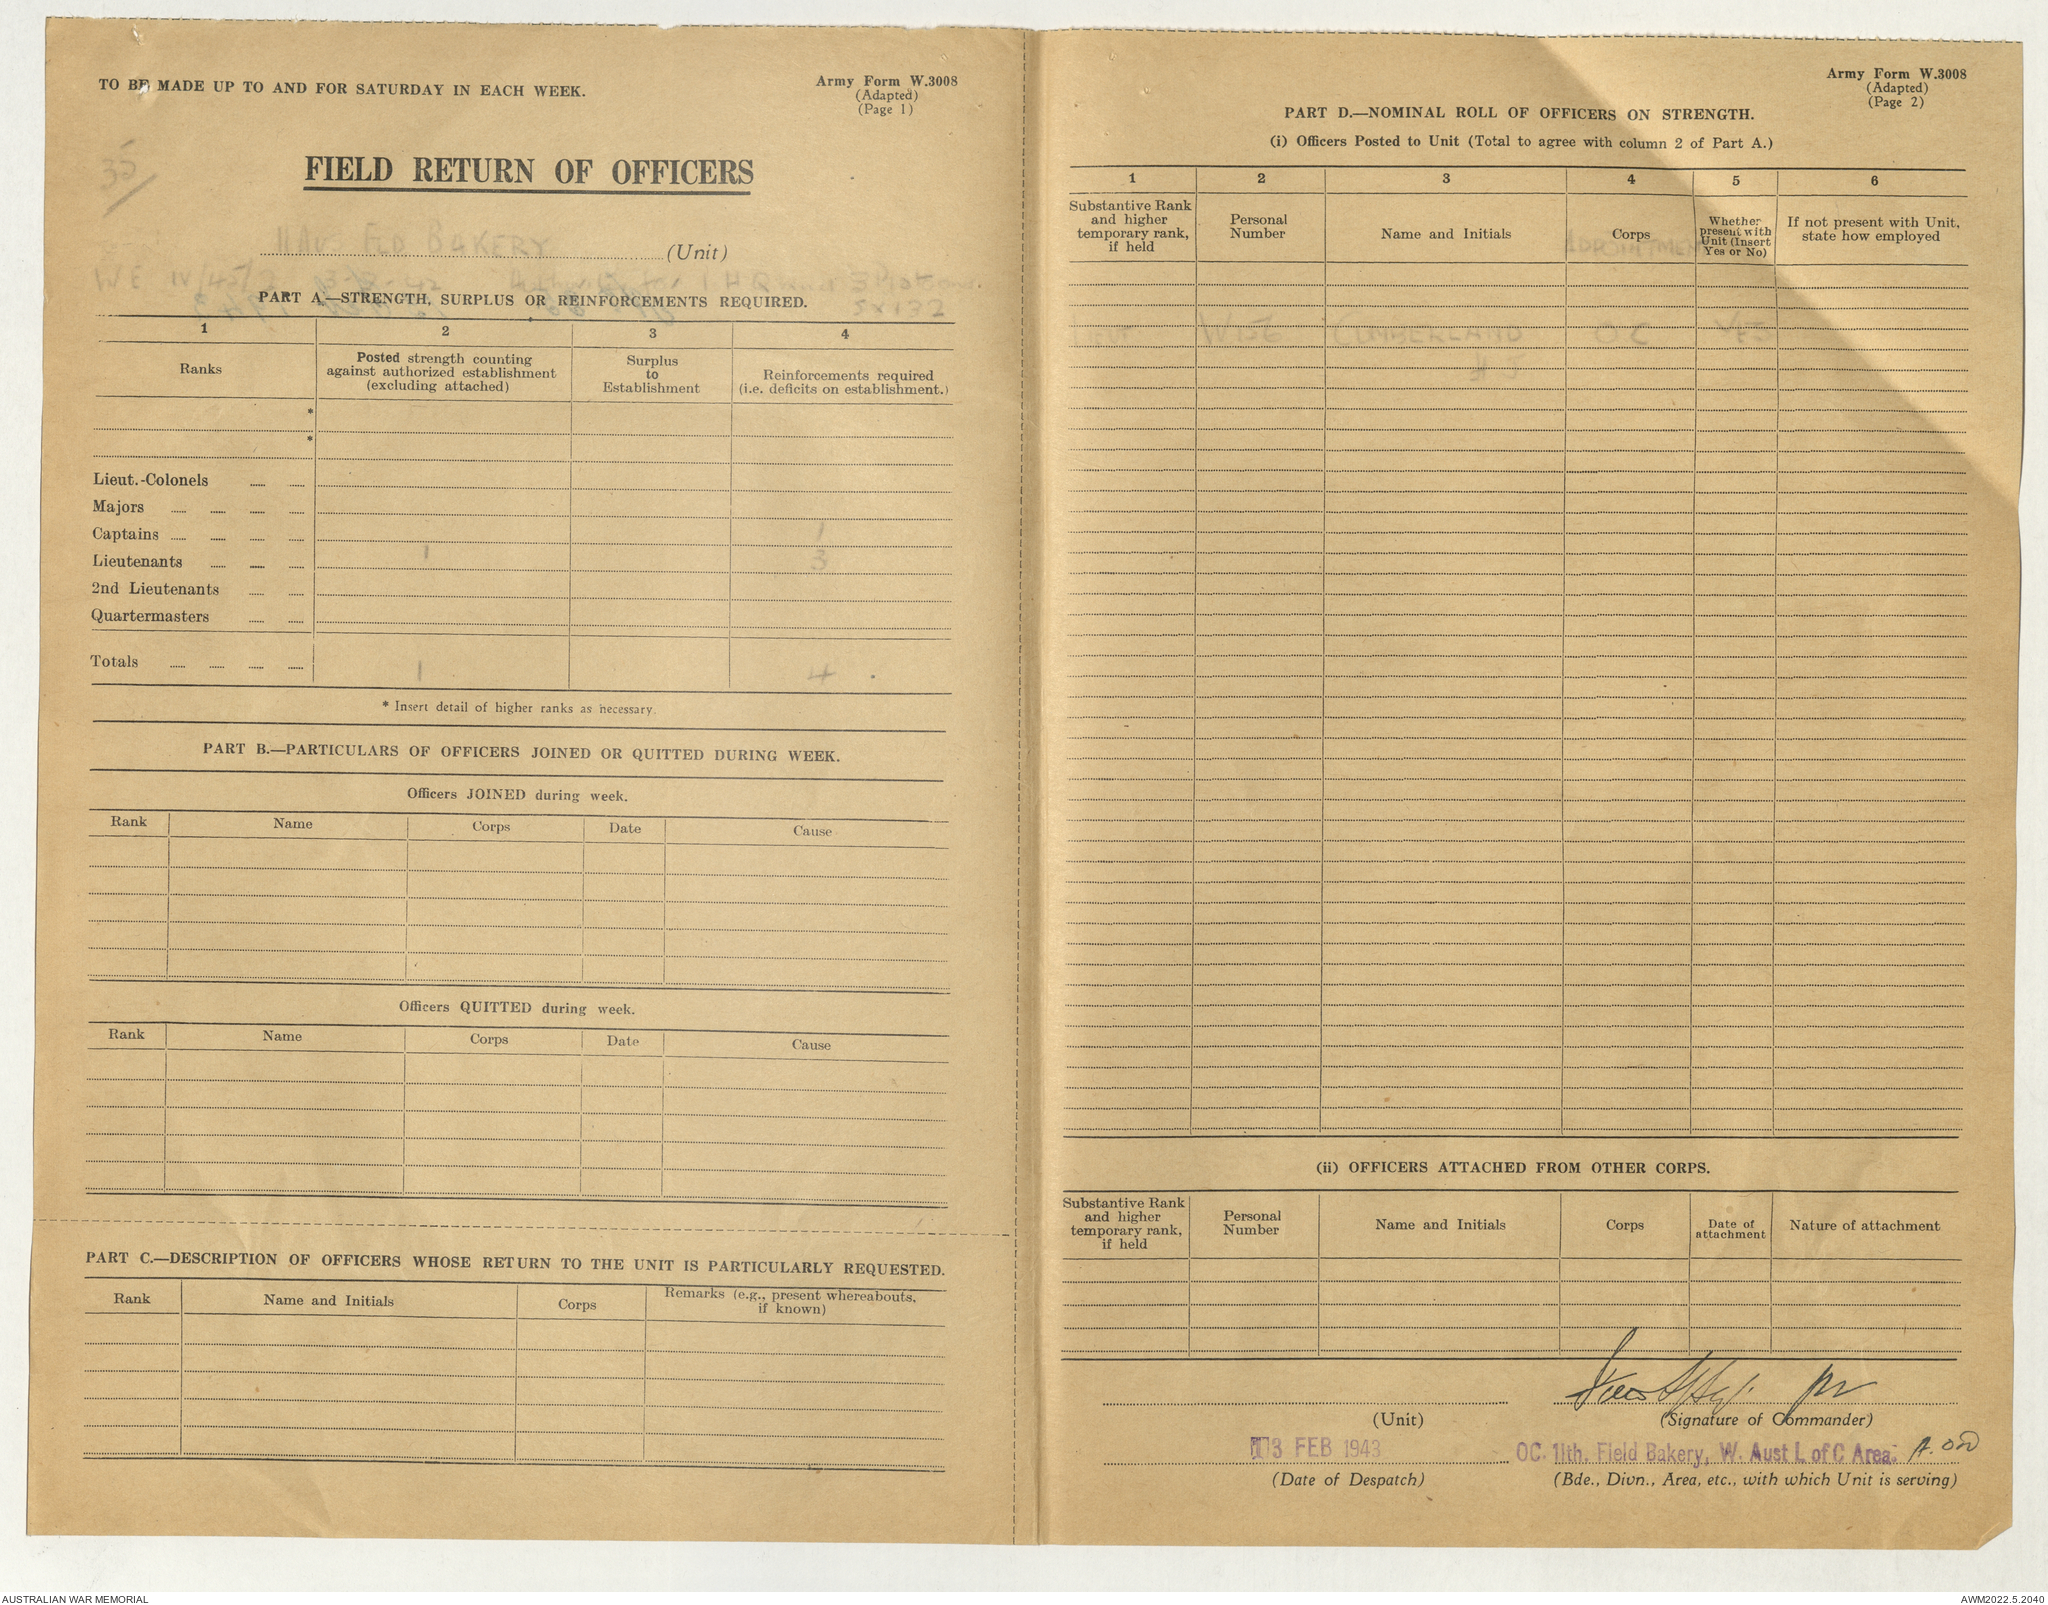 TO BE MADE UP TO AND FOR SATURDAY IN EACH WEEK.
Army Form W.3008
(Adapted)
(Page 1)
35
FIELD RETURN OF OFFICERS
11 AUS FLD BAKERY (Unit)
WE IV/45/ 1 HQ and 3 Platoons
5 x 132
PART A.—STRENGTH, SURPLUS OR REINFORCEMENTS REQUIRED.
1 2 3 4
Ranks
Posted strength counting
against authorized establishment
(excluding attached)
Surplus
to
Establishment
Reinforcements required
(i.e. deficits on establishment.)
*
*
Lieut.-Colonels
Majors
Captains 1
Lieutenants 1 3
2nd Lieutenants
Quartermasters
Totals 1 4
* Insert detail of higher ranks as necessary.
PART B.—PARTICULARS OF OFFICERS JOINED OR QUITTED DURING WEEK.
Officers JOINED during week.
Rank Name Corps Date Cause
Officers QUITTED during week.
Rank Name Corps Date Cause
PART C.—DESCRIPTION OF OFFICERS WHOSE RETURN TO THE UNIT IS PARTICULARLY REQUESTED.
Rank Name and Initials Corps
Remarks (e.g., present whereabouts,
if known)
Army Form W.3008
(Adapted)
(Page 2)
PART D.—NOMINAL ROLL OF OFFICERS ON STRENGTH.
(i) Officers Posted to Unit (Total to agree with column 2 of Part A.)
1 2 3 4 5 6
Substantive Rank
and higher
temporary rank,
if held
Personal
Number
Name and Initials
Corps
APPOINTMENT
Whether
present with
Unit (Insert
Yes or No)
If not present with Unit,
state how employed
LIEUT W156 CUMBERLAND OC YES
(ii) OFFICERS ATTACHED FROM OTHER CORPS.
Substantive Rank
and higher
temporary rank,
if held
Personal
Number
Name and Initials
Corps
Date of
attachment
Nature of attachment
(Unit)
(Signature of Commander)
13 FEB 1943
OC. 11th. Field Bakery, W. Aust L of C Area.
(Date of Despatch)
(Bde., Divn., Area, etc., with which Unit is serving)
AUSTRALIAN WAR MEMORIAL
AWM2022.5.2040